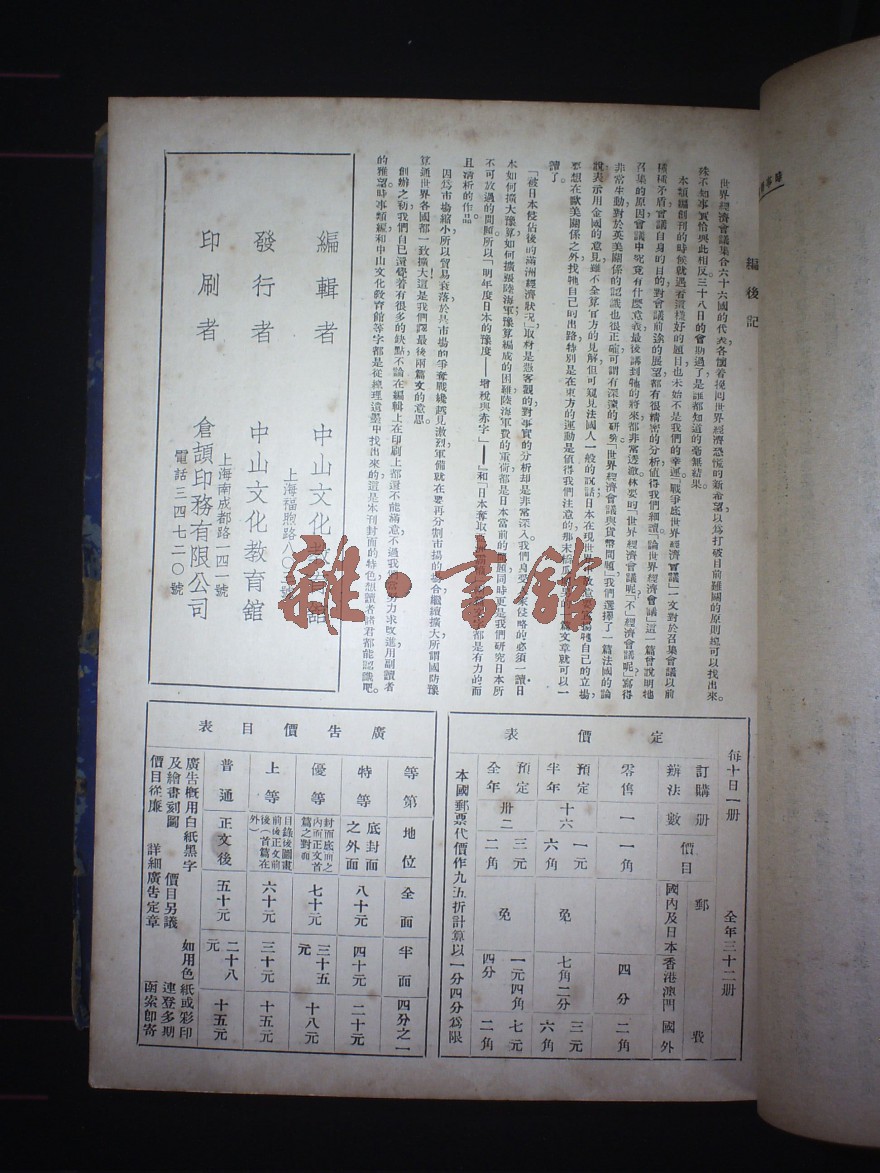 編後記
世界經濟會議集合六十六國的代表各懷着挽囘世界經濟恐慌的新希望以爲打破目前難關的原則總可以找出來。
殊不知事實恰與此相反三十八日的會期過了是誰都知道的毫無結果。
本類編創刊的時候就遇着這樣好的題目也未始不是我們的幸運。「戰爭底世界經濟會議」一文對於召集會議以前
種種矛盾會議自身的目的對會議前途的展望都有很精密的分析值得我們細讀。「論世界經濟會議」這一篇曾說明牠
召集的原因會議中究竟有什麼意義最後講到牠的將來都非常透澈林要的「世界經濟會議呢？不經濟會議呢」寫得
非常生動對於英美關係的認識也很正確可謂有深湛的研究。「世界經濟會議與貨幣問題」我們選擇了一篇法國的論
說表示用金國的意見雖不全算官方的見解但可窺見法國人一般的說話日本在現世界
自己的立場
要想在歐美關係之外找牠自己的出路特別是在東方的運動是值得我們注意的那末
一篇文章就可以一
讀了。
「被日本侵佔後的滿洲經濟狀況」取材是憑客觀的對事實的分析却是非常深入我們身受
侵略的必須一讀日
本如何擴大豫算如何擴張陸海軍豫算編成的困難陸海軍費的重荷都是日本當前的
題同時更是我們研究日本所
不可放過的問題所以「明年度日本的豫度——增稅與赤字」——和「日本奪取
都是有力的而
且淸析的作品。
因爲市場縮小所以貿易衰落於是市場的爭奪戰纔越見激烈軍備就在要再分割市場的場合繼續擴大所謂國防豫
算通世界各國都一致擴大這是我們譯最後兩篇文的意思。
創辦之初我們自己還覺着有很多的缺點不論在編輯上在印刷上都還不能滿意不過我
努力求改進用副讀者
的雅望時事類編和中山文化教育館等字都是從總理遺墨中找出來的這是本刊封面的特色想讀者諸君都能認識吧。
編輯者 中山文化教育館
上海福煦路八〇
號
發行者 中山文化教育館
上海南成都路一四一號
印刷者 倉頡印務有限公司
電話三四七二〇號
雜·書館
定價表
每十日一册 全年三十二册
訂購辦法 册數 價目 郵費
國內及日本 香港澳門 國外
零售 一 一角 四分 二角
預定半年 十六 一元六角 免 七角二分 三元六角
預定全年 卅二 三元二角 免 一元四角四分 七元二角
本國郵票代價作九五折計算以一分四分爲限
廣告價目表
等第 地位 全面 半面 四分之一
特等 底封面之外面 八十元 四十元 二十元
優等 封面底面之內面正文首篇之對面 七十元 三十五元 十八元
上等 目錄後圖畫前後正文前後（首篇在外） 六十元 三十元 十五元
普通 正文後 五十元 二十八元 十五元
廣告概用白紙黑字 如用色紙或彩印
及繪畫刻圖 價目另議 連登多期
價目從廉 詳細廣告定章 函索卽寄